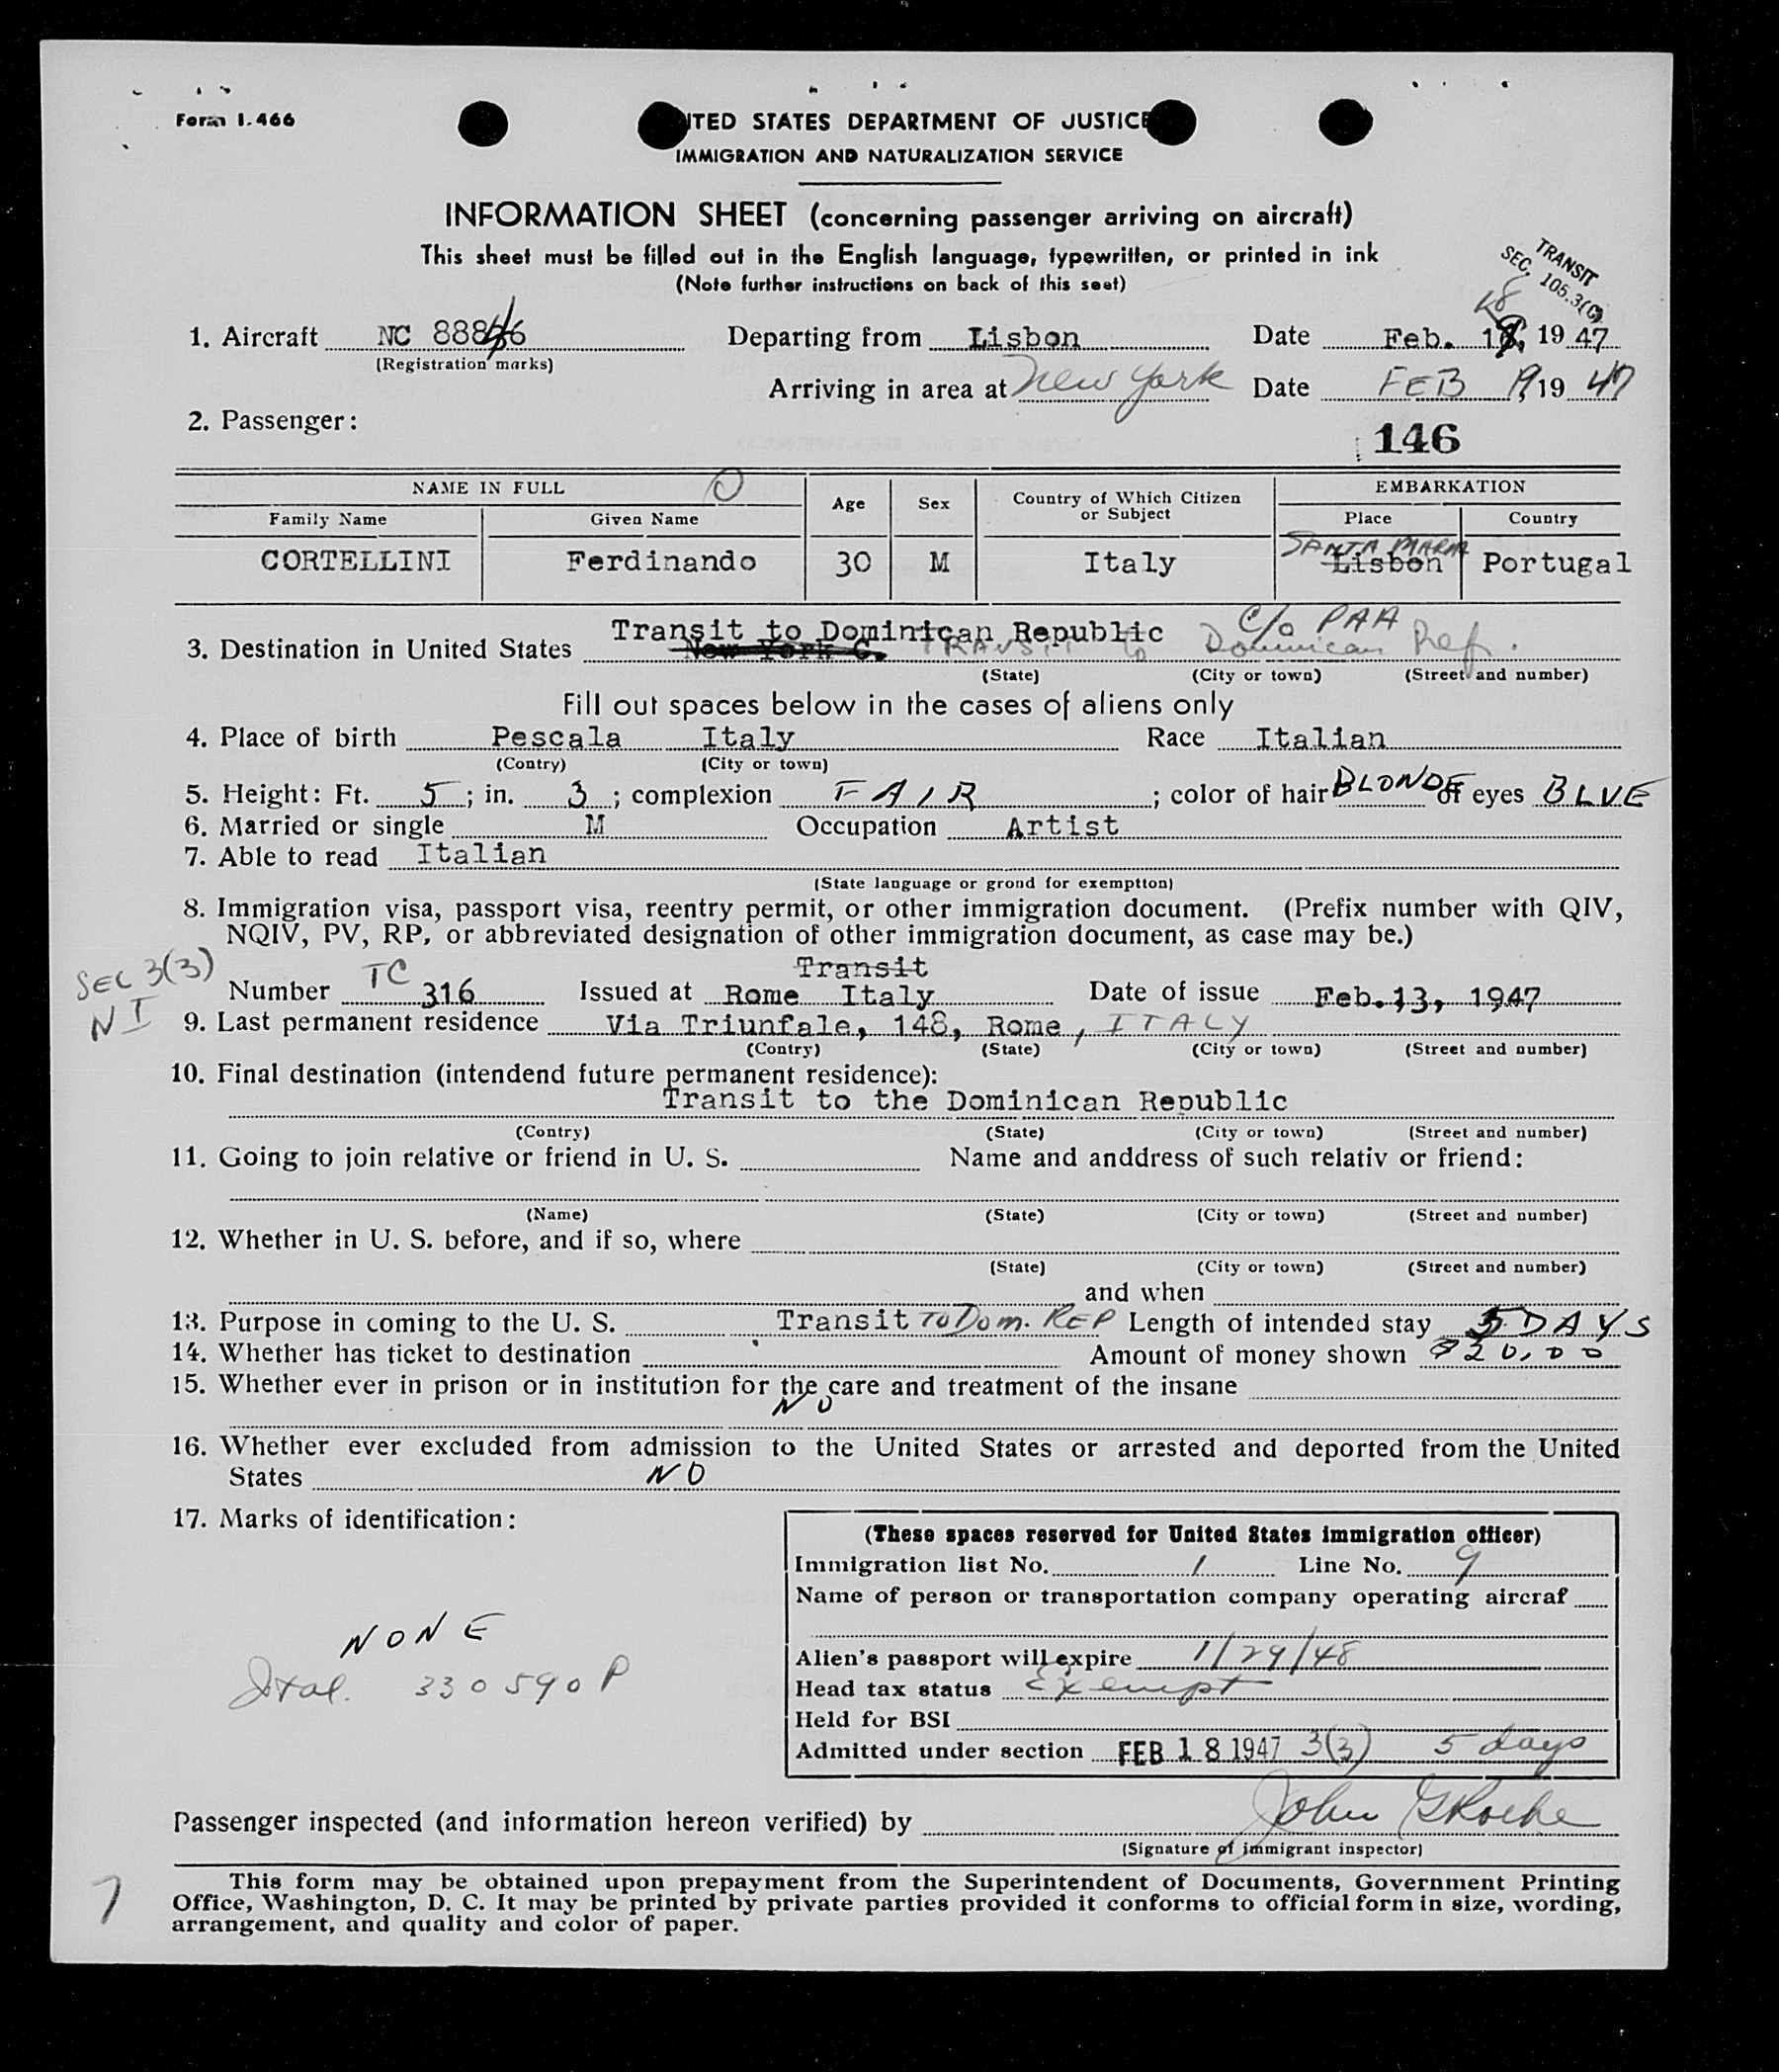 Form I-466
ITED STATES DEPARTMENT OF JUSTICE
IMMIGRATION AND NATURALIZATION SERVICE
INFORMATION SHEET (concerning passenger arriving on aircraft)
This sheet must be filled out in the English language, typewritten, or printed in ink
(Note further instructions on back of this seet)
TRANSIT
SEC. 105.3(C)
1. Aircraft NC 888 6 Departing from Lisbon Date Feb. 18, 1947
(Registration marks)
Arriving in area at New York Date FEB 19 47
2. Passenger:
146
NAME IN FULL Age Sex Country of Which Citizen or Subject EMBARKATION
Family Name Given Name Place Country
SANTA MARIA
CORTELLINI Ferdinando 30 M Italy Lisbon Portugal
Transit to Dominican Republic C/o PAA
3. Destination in United States New York C. TRANSIT to Dominican Rep.
(State) (City or town) (Street and number)
Fill out spaces below in the cases of aliens only
4. Place of birth Pescala Italy Race Italian
(Contry) (City or town)
5. Height: Ft. 5; in. 3; complexion FAIR; color of hair BLONDE of eyes BLUE
6. Married or single M Occupation Artist
7. Able to read Italian
(State language or grond for exemptton)
8. Immigration visa, passport visa, reentry permit, or other immigration document. (Prefix number with QIV,
NQIV, PV, RP, or abbreviated designation of other immigration document, as case may be.)
SEC 3(3)
NI
Transit
Number TC 316 Issued at Rome Italy Date of issue Feb. 13, 1947
9. Last permanent residence Via Triunfale, 148, Rome, ITALY
(Contry) (State) (City or town) (Street and number)
10. Final destination (intendend future permanent residence):
Transit to the Dominican Republic
(Contry) (State) (City or town) (Street and number)
11. Going to join relative or friend in U. S. Name and anddress of such relativ or friend:
(Name) (State) (City or town) (Street and number)
12. Whether in U. S. before, and if so, where
(State) (City or town) (Street and number)
and when
13. Purpose in coming to the U. S. Transit TO Dom. REP Length of intended stay 5 DAYS
14. Whether has ticket to destination Amount of money shown $20.00
15. Whether ever in prison or in institution for the care and treatment of the insane
NO
16. Whether ever excluded from admission to the United States or arrested and deported from the United
States NO
17. Marks of identification:
NONE
Ital. 330590P
(These spaces reserved for United States immigration officer)
Immigration list No. 1 Line No. 9
Name of person or transportation company operating aircraf
Alien's passport will expire 1/29/48
Head tax status Exempt
Held for BSI
Admitted under section FEB 18 1947 3(3) 5 days
Passenger inspected (and information hereon verified) by John G Roche
(Signature of immigrant inspector)
7
This form may be obtained upon prepayment from the Superintendent of Documents, Government Printing
Office, Washington, D. C. It may be printed by private parties provided it conforms to official form in size, wording,
arrangement, and quality and color of paper.